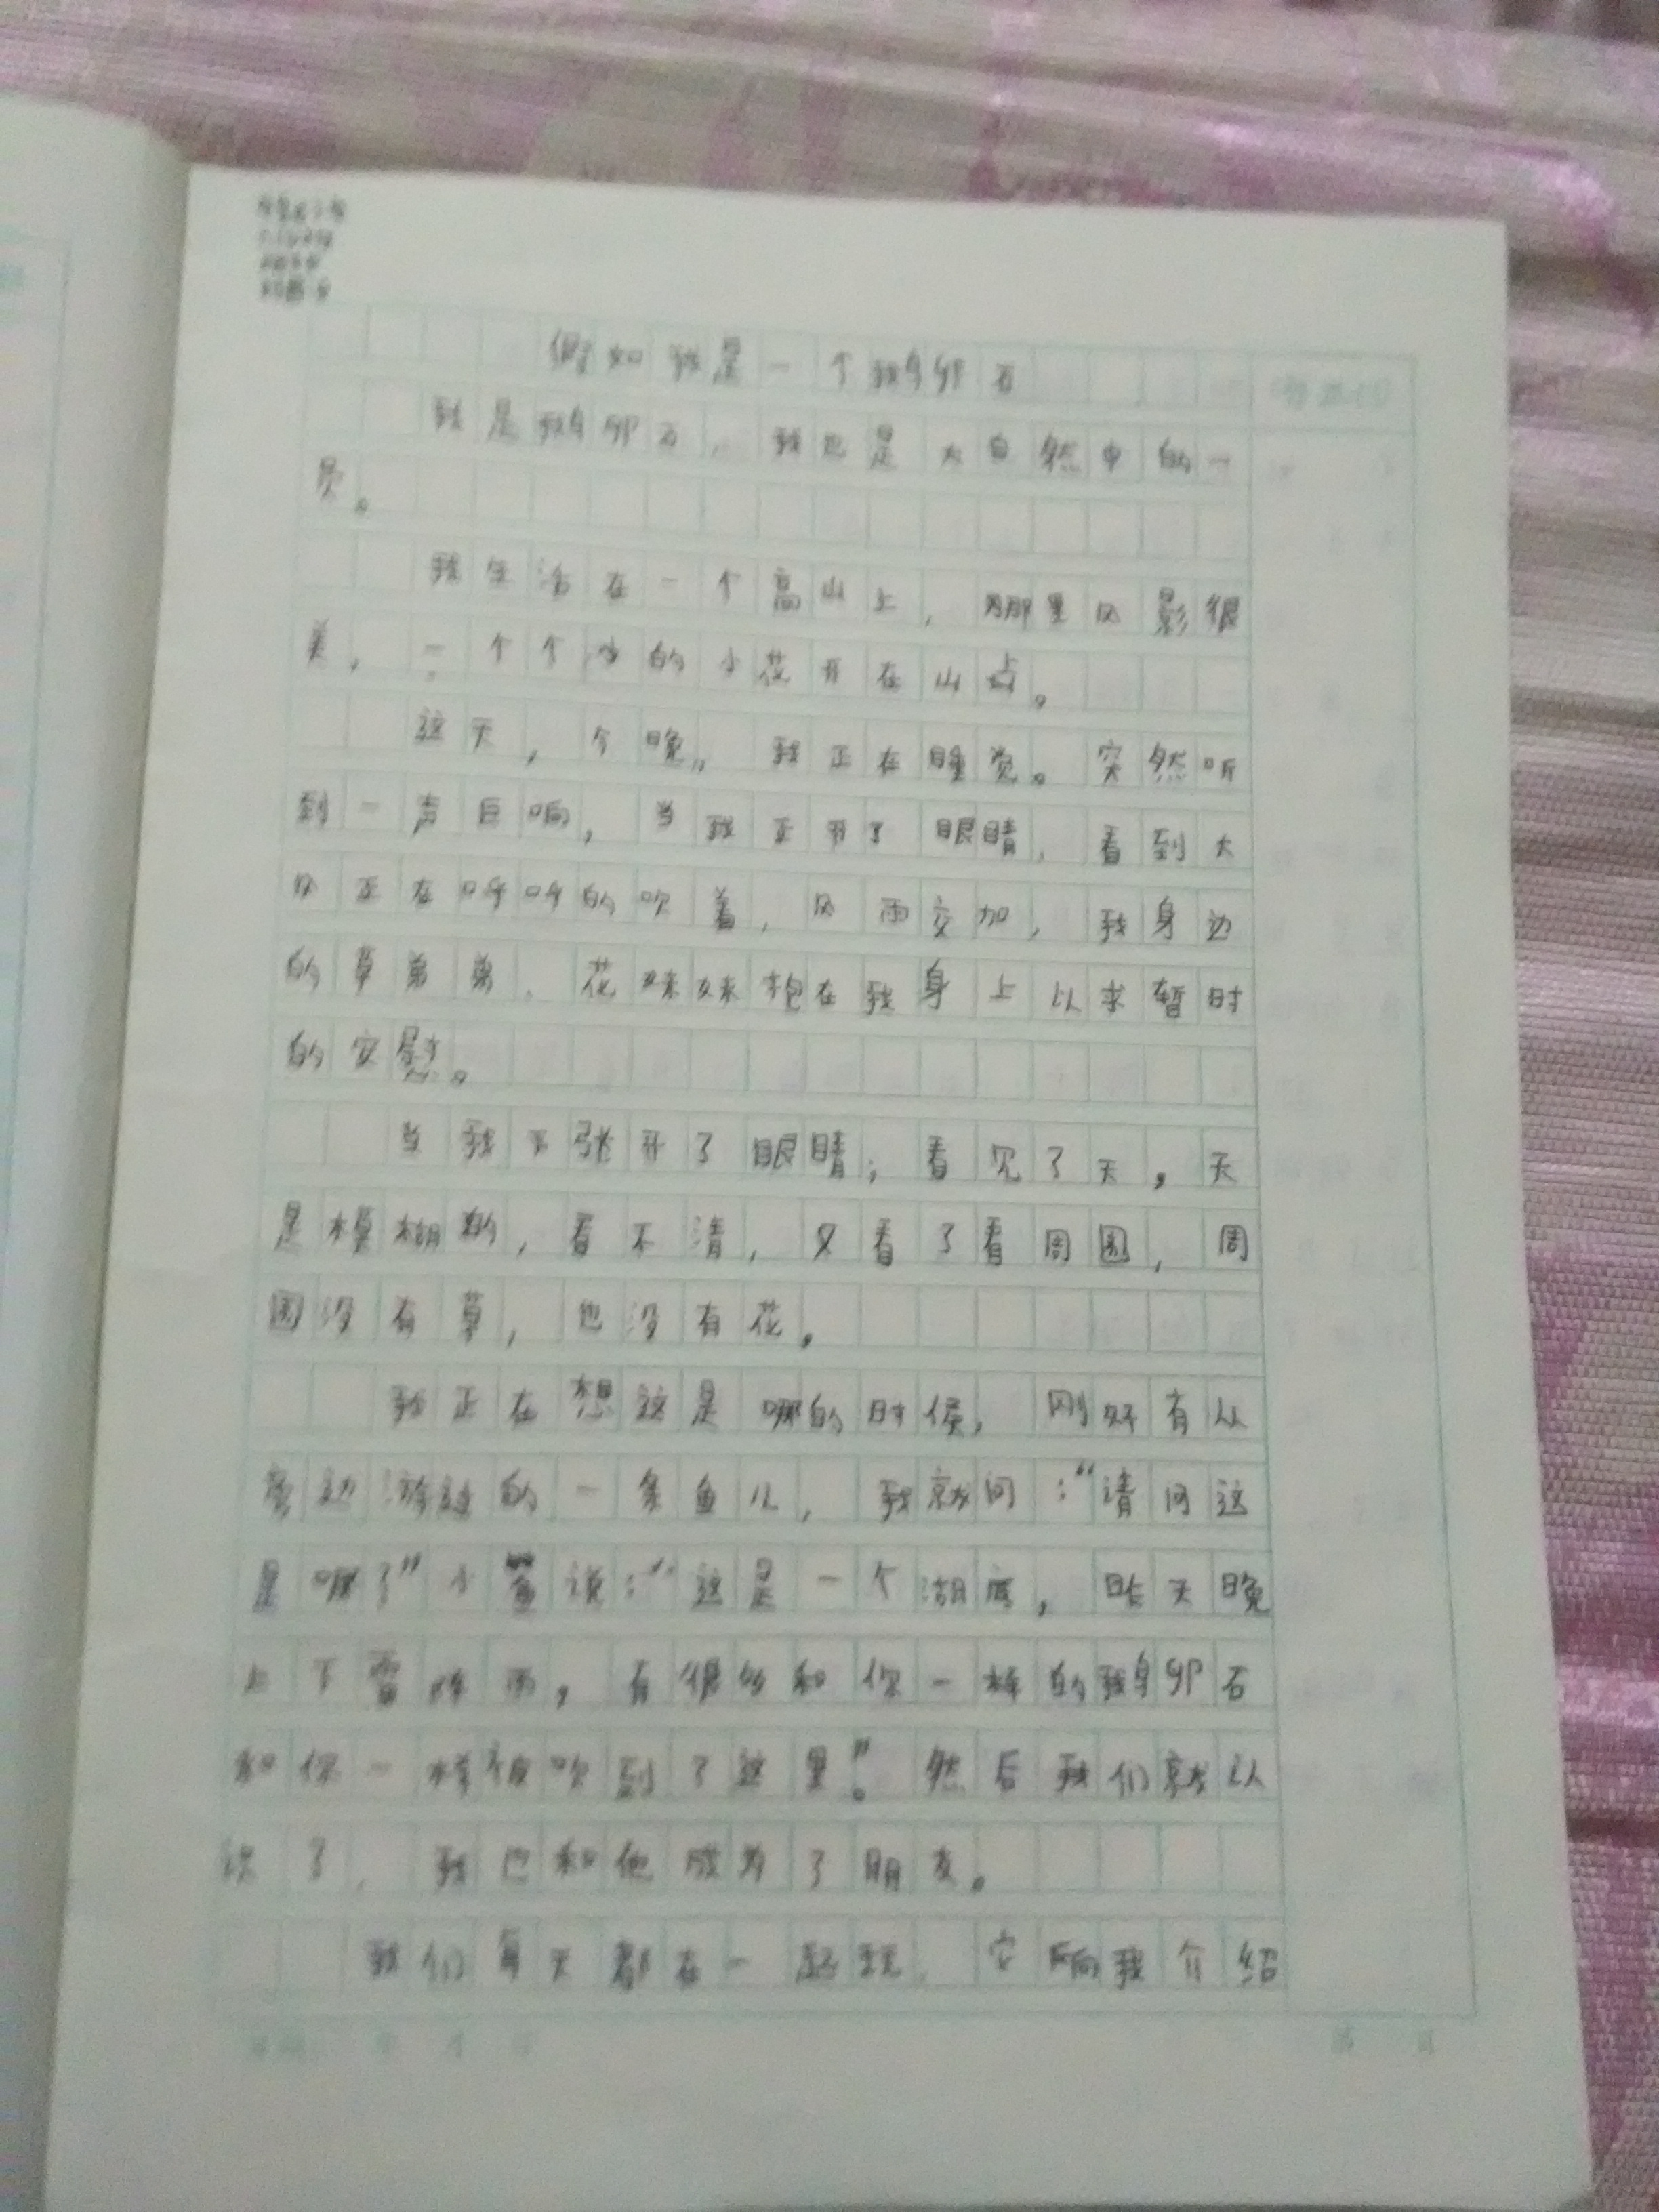 假如我是一个鹅卵石
我是鹅卵石，我也是大自然中的一
员。
我生活在一个高山上，那里风影很
美，一个个小的小花开在山上。
这天，个晚，我正在睡觉。突然听
到一声巨响，当我正开了眼睛，看到大
风正在呼呼的吹着，风雨交加，我身边
的草弟弟、花妹妹抱在我身上以求暂时
的安慰。
当我下张开了眼睛，看见了天，天
是模糊的，看不清，又看了看周围，周
围没有草，也没有花。
我正在想这是哪的时候，刚好有从
旁边游过的一条鱼儿，我就问：“请问这
是哪了”小鱼说：“这是一个湖底，昨天晚
上下雷阵雨，有很多和你一样的鹅卵石
和你一样被吹到了这里。”然后我们就认
识了，我也和他成为了朋友。
我们每天都在一起玩，它向我介绍